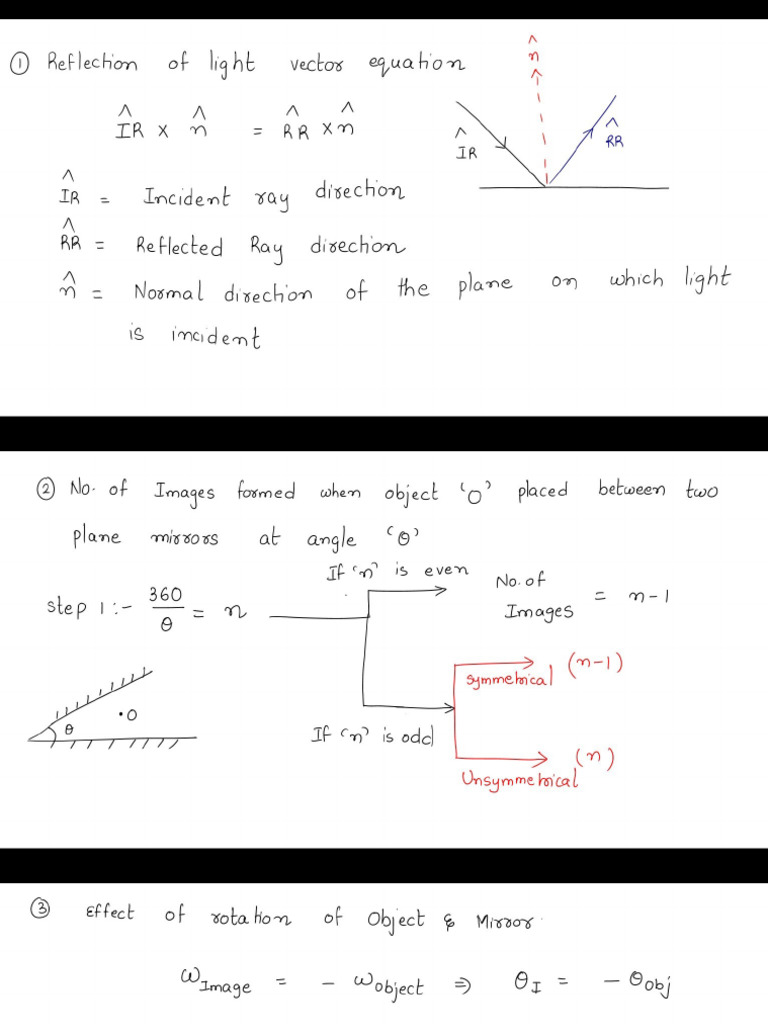 ① Reflection of light vector equation
n̂
ÎR × n̂ = R̂R × n̂
ÎR
R̂R
ÎR = Incident ray direction
R̂R = Reflected Ray direction
n̂ = Normal direction of the plane on which light
is incident
② No. of Images formed when object 'O' placed between two
plane mirrors at angle 'θ'
If 'n' is even
Step 1 :- 360/θ = n
No. of Images = n-1
Symmetrical (n-1)
• O
θ
If 'n' is odd
Unsymmetrical (n)
③ Effect of rotation of Object & Mirror.
ω_Image = - ω_object ⇒ θ_I = - θ_Obj